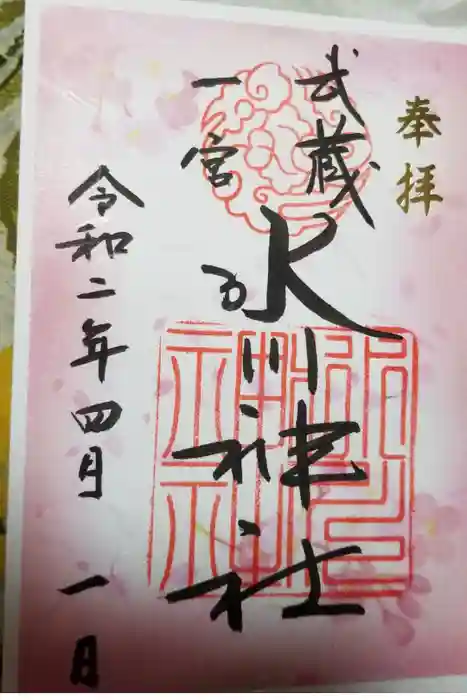 奉拝
武蔵
一宮
氷川神社
令和二年四月一日